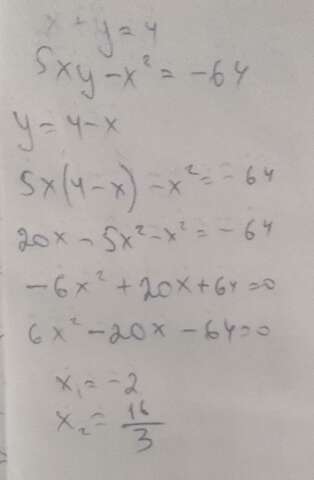 x + y = 4
5xy - x² = -64
y = 4 - x
5x(4 - x) - x² = -64
20x - 5x² - x² = -64
-6x² + 20x + 64 = 0
6x² - 20x - 64 = 0
x₁ = -2
x₂ = 16/3